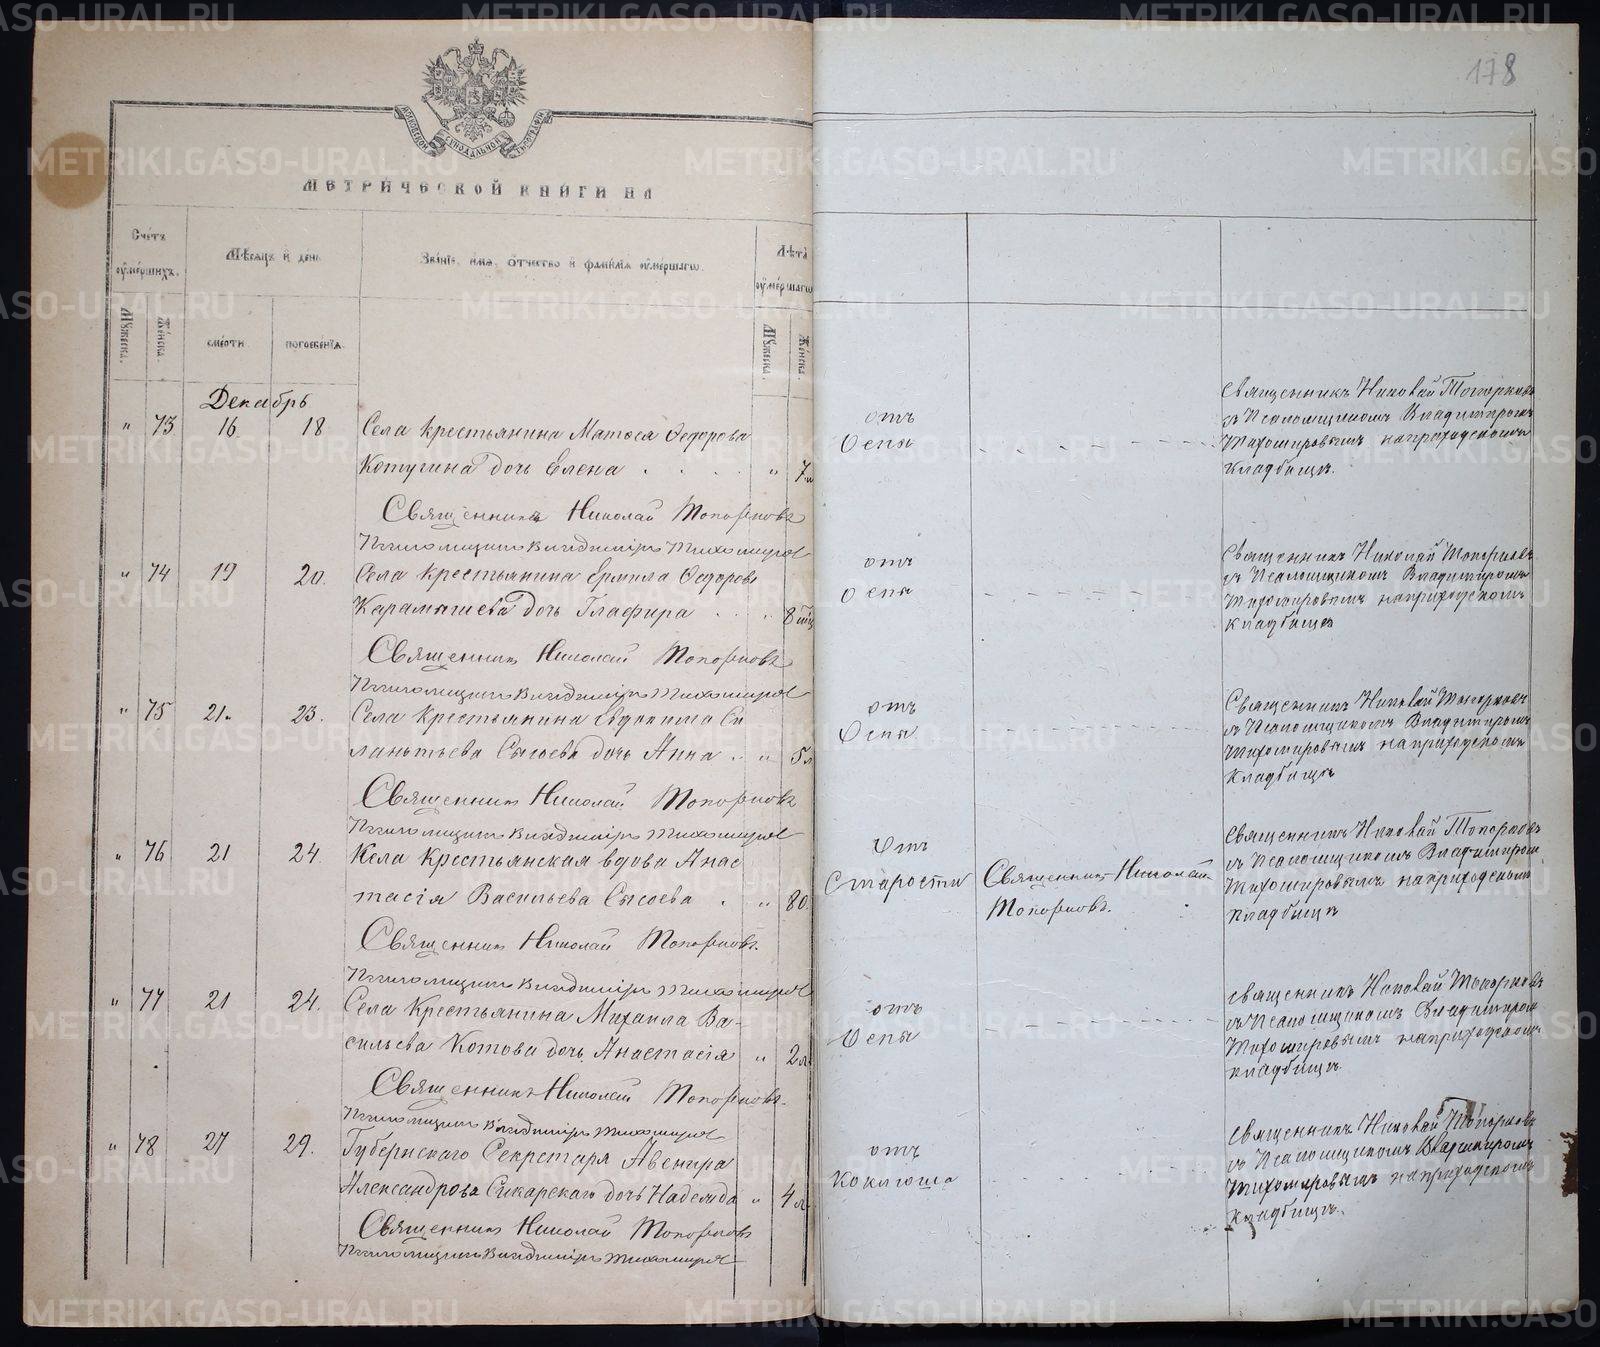 178
МОСКОВСКОЙ СѴНОДАЛЬНОЙ ТИПОГРАФІИ
МЕТРИЧЕСКОЙ КНИГИ НА
Счетъ умершихъ.
Мѣсяцъ и день
Званіе, имя, отчество и фамилія умершаго.
Лѣта умершаго
Мужеска.
Женска.
смерти
погребенія.
Мужеска.
Женска.
Декабрь
" 73 16. 18 Села крестьянина Матѳея Ѳедорова
Котугина дочь Елена . . . . " 7
Священникъ Николай Топорковъ
Псаломщикъ Владиміръ Тихомировъ
отъ
Оспы
Священникъ Николай Топорковъ
съ Псаломщикомъ Владимиромъ
Тихомировымъ на приходскомъ
кладбищѣ.
" 74 19 20. Села крестьянина Ермила Ѳедорова
Карамышева дочь Глафира . . . 8 мѣс
Священникъ Николай Топорковъ
Псаломщикъ Владиміръ Тихомировъ
отъ
оспы
Священникъ Николай Топорковъ
съ Псаломщикомъ Владимиромъ
Тихомировымъ на приходскомъ
кладбищѣ
" 75 21. 23. Села крестьянина Евдокима Си
лантьева Сысоева дочь Анна . . " 5 л
Священникъ Николай Топорковъ
Псаломщикъ Владиміръ Тихомировъ
отъ
Оспы
Священникъ Николай Топорковъ
съ Псаломщикомъ Владимиромъ
Тихомировымъ на приходскомъ
кладбищѣ
" 76 21 24. Села Крестьянская вдова Анас
тасія Васильева Сысоева . " 80.
Священникъ Николай Топорковъ.
Псаломщикъ Владиміръ Тихомировъ
Отъ
старости
Священникъ Николай
Топорковъ.
Священникъ Николай Топорковъ
съ Псаломщикомъ Владимиромъ
Тихомировымъ на приходскомъ
кладбищѣ
" 77 21 24. Села Крестьянина Михаила Ва-
сильева Котова дочь Анастасія " 2 л
Священникъ Николай Топорковъ.
Псаломщикъ Владиміръ Тихомировъ
отъ
Оспы
Священникъ Николай Топорковъ
съ Псаломщикомъ Владимиромъ
Тихомировымъ на приходскомъ
кладбищѣ.
" 78 27 29. Губернскаго Секретаря Авенира
Александрова Сикарскаго дочь Надежда " 4 л.
Священникъ Николай Топорковъ
Псаломщикъ Владиміръ Тихомировъ
отъ
коклюша
Священникъ Николай Топорковъ
съ Псаломщикомъ Владимиромъ
Тихомировымъ на приходскомъ
кладбищѣ.
METRIKI.GASO-URAL.RU